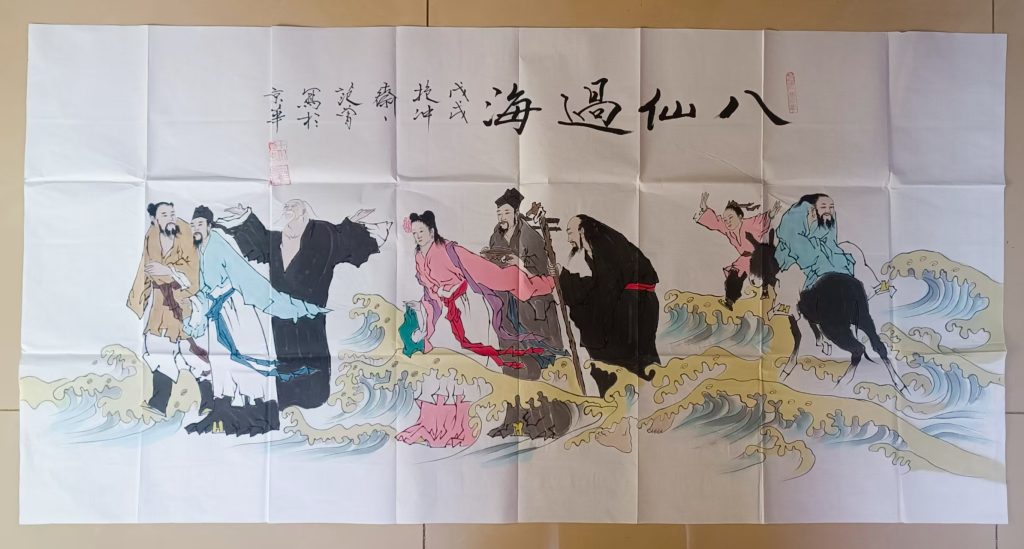 八仙過海
戊戌
抱冲
齋
寫於
京華